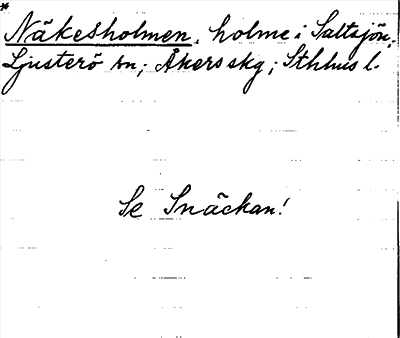 * Näkesholmen, holme i Saltsjön,
Ljusterö sn; Åkers skg; Sthlms l.
Se Snäckan!